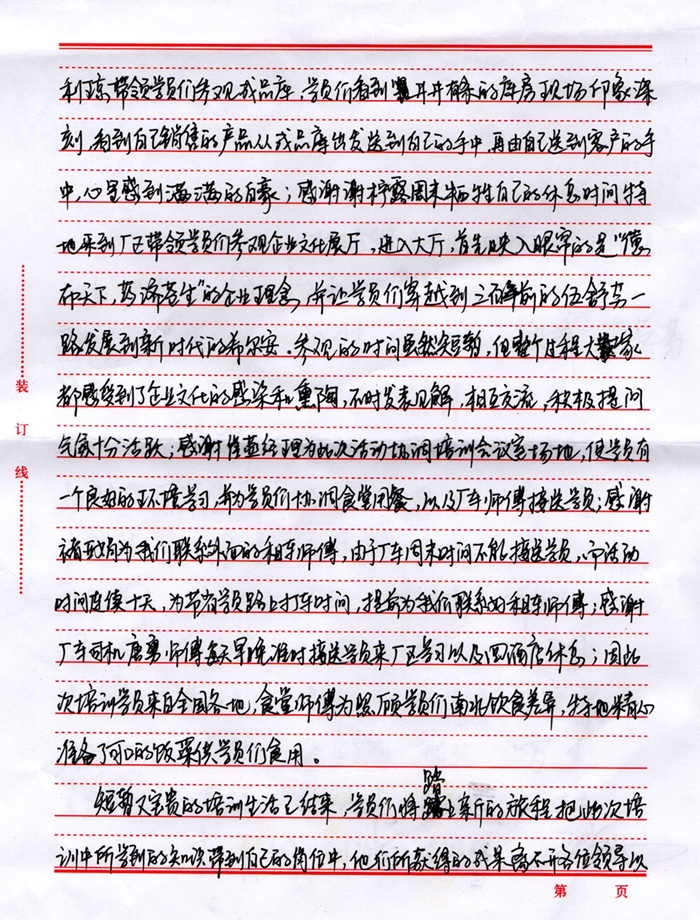 利琼带领学员们参观成品库，学员们看到井井有条的库房现场印象深
刻，看到自己销售的产品从成品库出发送到自己的手中，再由自己送到客户的手
中，心里感到满满的自豪；感谢谢梓露周末牺牲自己的休息时间特
地来到厂区带领学员们参观企业文化展厅，进入大厅，首先映入眼帘的是“德
布天下，药济苍生”的企业理念，并让学员们穿越到三百年前的伍舒芳一
路发展到新时代的希尔安。参观的时间虽然短暂，但整个过程大家
都感受到了企业文化的感染和熏陶，不时发表见解，相互交流，积极提问
气氛十分活跃；感谢崔莹经理为此次活动协调培训会议室场地，使学员有
一个良好的环境学习，并为学员们协调食堂用餐，以及厂车师傅接送学员；感谢
褚娟为我们联系外面的租车师傅，由于厂车周末时间不能接送学员，而活动
时间连续十天，为节省学员路上打车时间，提前为我们联系好租车师傅；感谢
厂车司机唐勇师傅每天早晚准时接送学员来厂区学习以及回酒店休息；因此
次培训学员来自全国各地，食堂师傅为照顾学员们南北饮食差异，特地精心
准备了可口的饭菜供学员们食用。
短暂又宝贵的培训生活已结束，学员们将踏上新的旅程，把此次培
训中所学到的知识带到自己的岗位中，他们所获得的成果离不开各位领导以
装订线
第 页